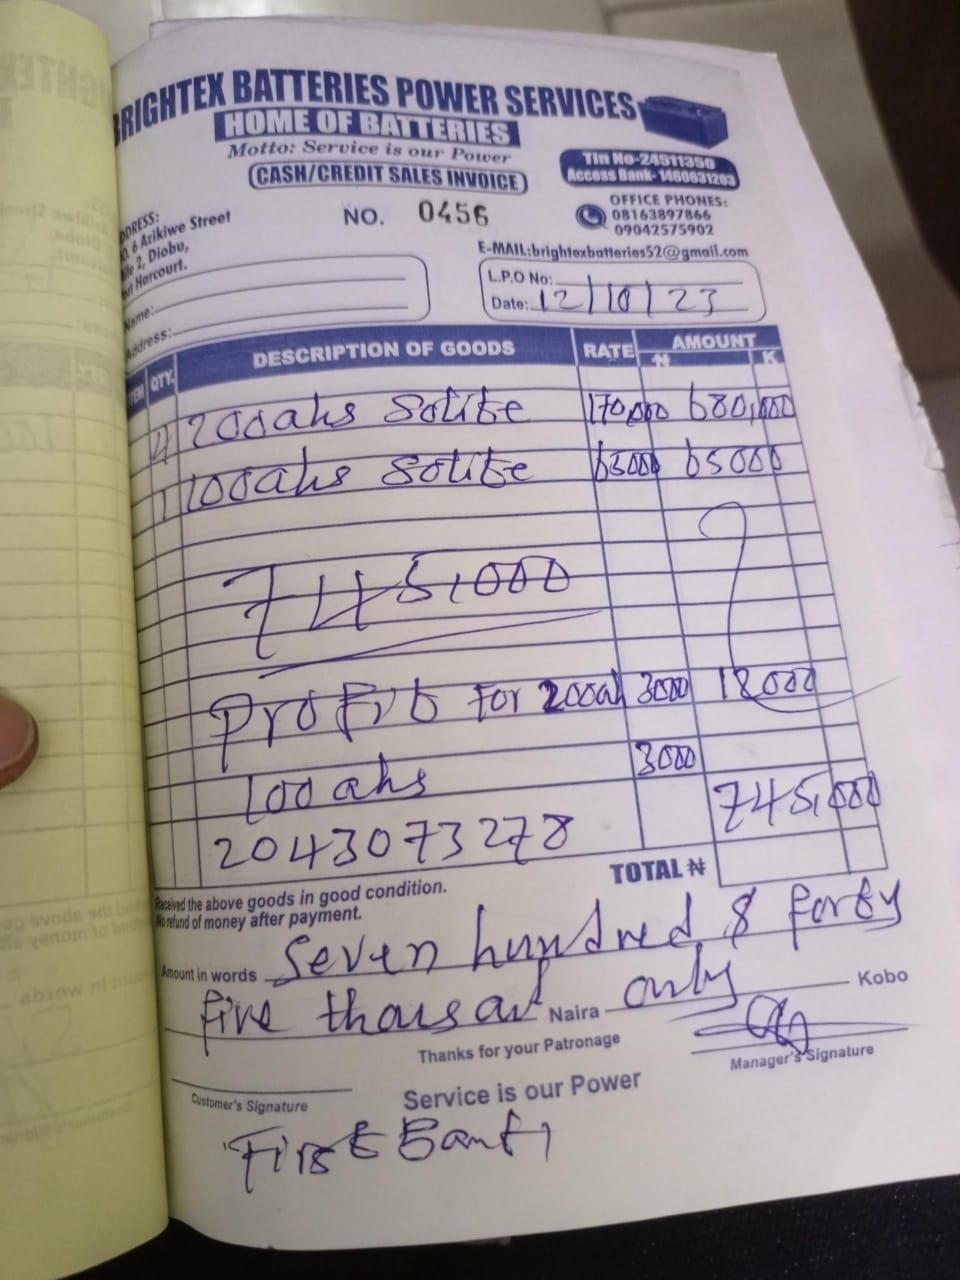 BRIGHTEX BATTERIES POWER SERVICES
HOME OF BATTERIES
Motto: Service is our Power
CASH/CREDIT SALES INVOICE
Tin No-24511350
Access Bank- 1460631203
ADDRESS:
No. 6 Azikiwe Street
Mile 2, Diobu,
Port Harcourt.
NO. 0456
OFFICE PHONES:
08163897866
09042575902
E-MAIL:brightexbatteries52@gmail.com
Name:
Address:
L.P.O No:
Date: 12/10/23
ITEM QTY. DESCRIPTION OF GOODS RATE AMOUNT
₦ K
4 200ahs Solite 170,000 680,000
1 100ahs Solite 65000 65000
745,000
Profit for 200ah 3000 12000
100ahs 3000
2043073278 745,000
TOTAL ₦
Received the above goods in good condition.
No refund of money after payment.
Amount in words Seven hundred & forty
five thousand Naira only Kobo
Thanks for your Patronage
Manager's Signature
Customer's Signature
Service is our Power
First Bank